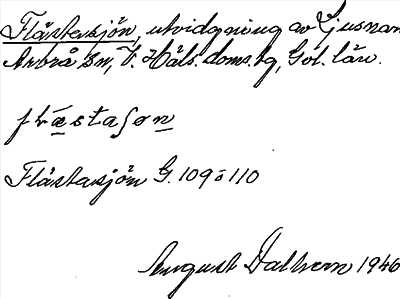 Flästasjön, utvidgning av Ljusnan.
Arbrå sn, V. Häls. doms. bg, Gvl. län.
flæstaʃøn
Flästasjön G. 109 ö 110
August Dalbern 1946